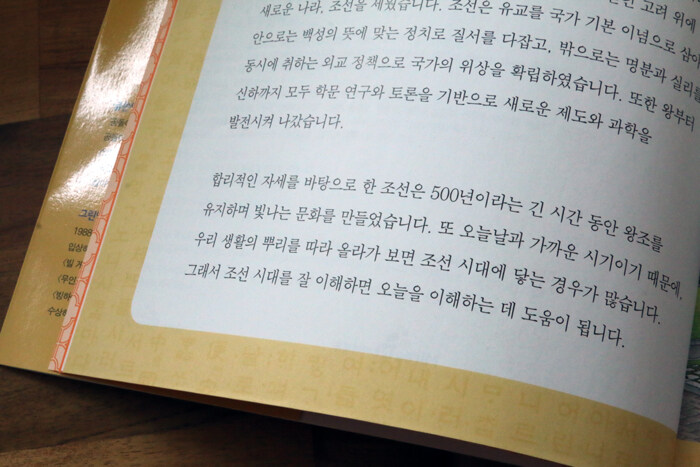 고려 위에
새로운 나라, 조선을 세웠습니다. 조선은 유교를 국가 기본 이념으로 삼아
안으로는 백성의 뜻에 맞는 정치로 질서를 다잡고, 밖으로는 명분과 실리를
동시에 취하는 외교 정책으로 국가의 위상을 확립하였습니다. 또한 왕부터
신하까지 모두 학문 연구와 토론을 기반으로 새로운 제도와 과학을
발전시켜 나갔습니다.
합리적인 자세를 바탕으로 한 조선은 500년이라는 긴 시간 동안 왕조를
유지하며 빛나는 문화를 만들었습니다. 또 오늘날과 가까운 시기이기 때문에,
우리 생활의 뿌리를 따라 올라가 보면 조선 시대에 닿는 경우가 많습니다.
그래서 조선 시대를 잘 이해하면 오늘을 이해하는 데 도움이 됩니다.
그림
1988